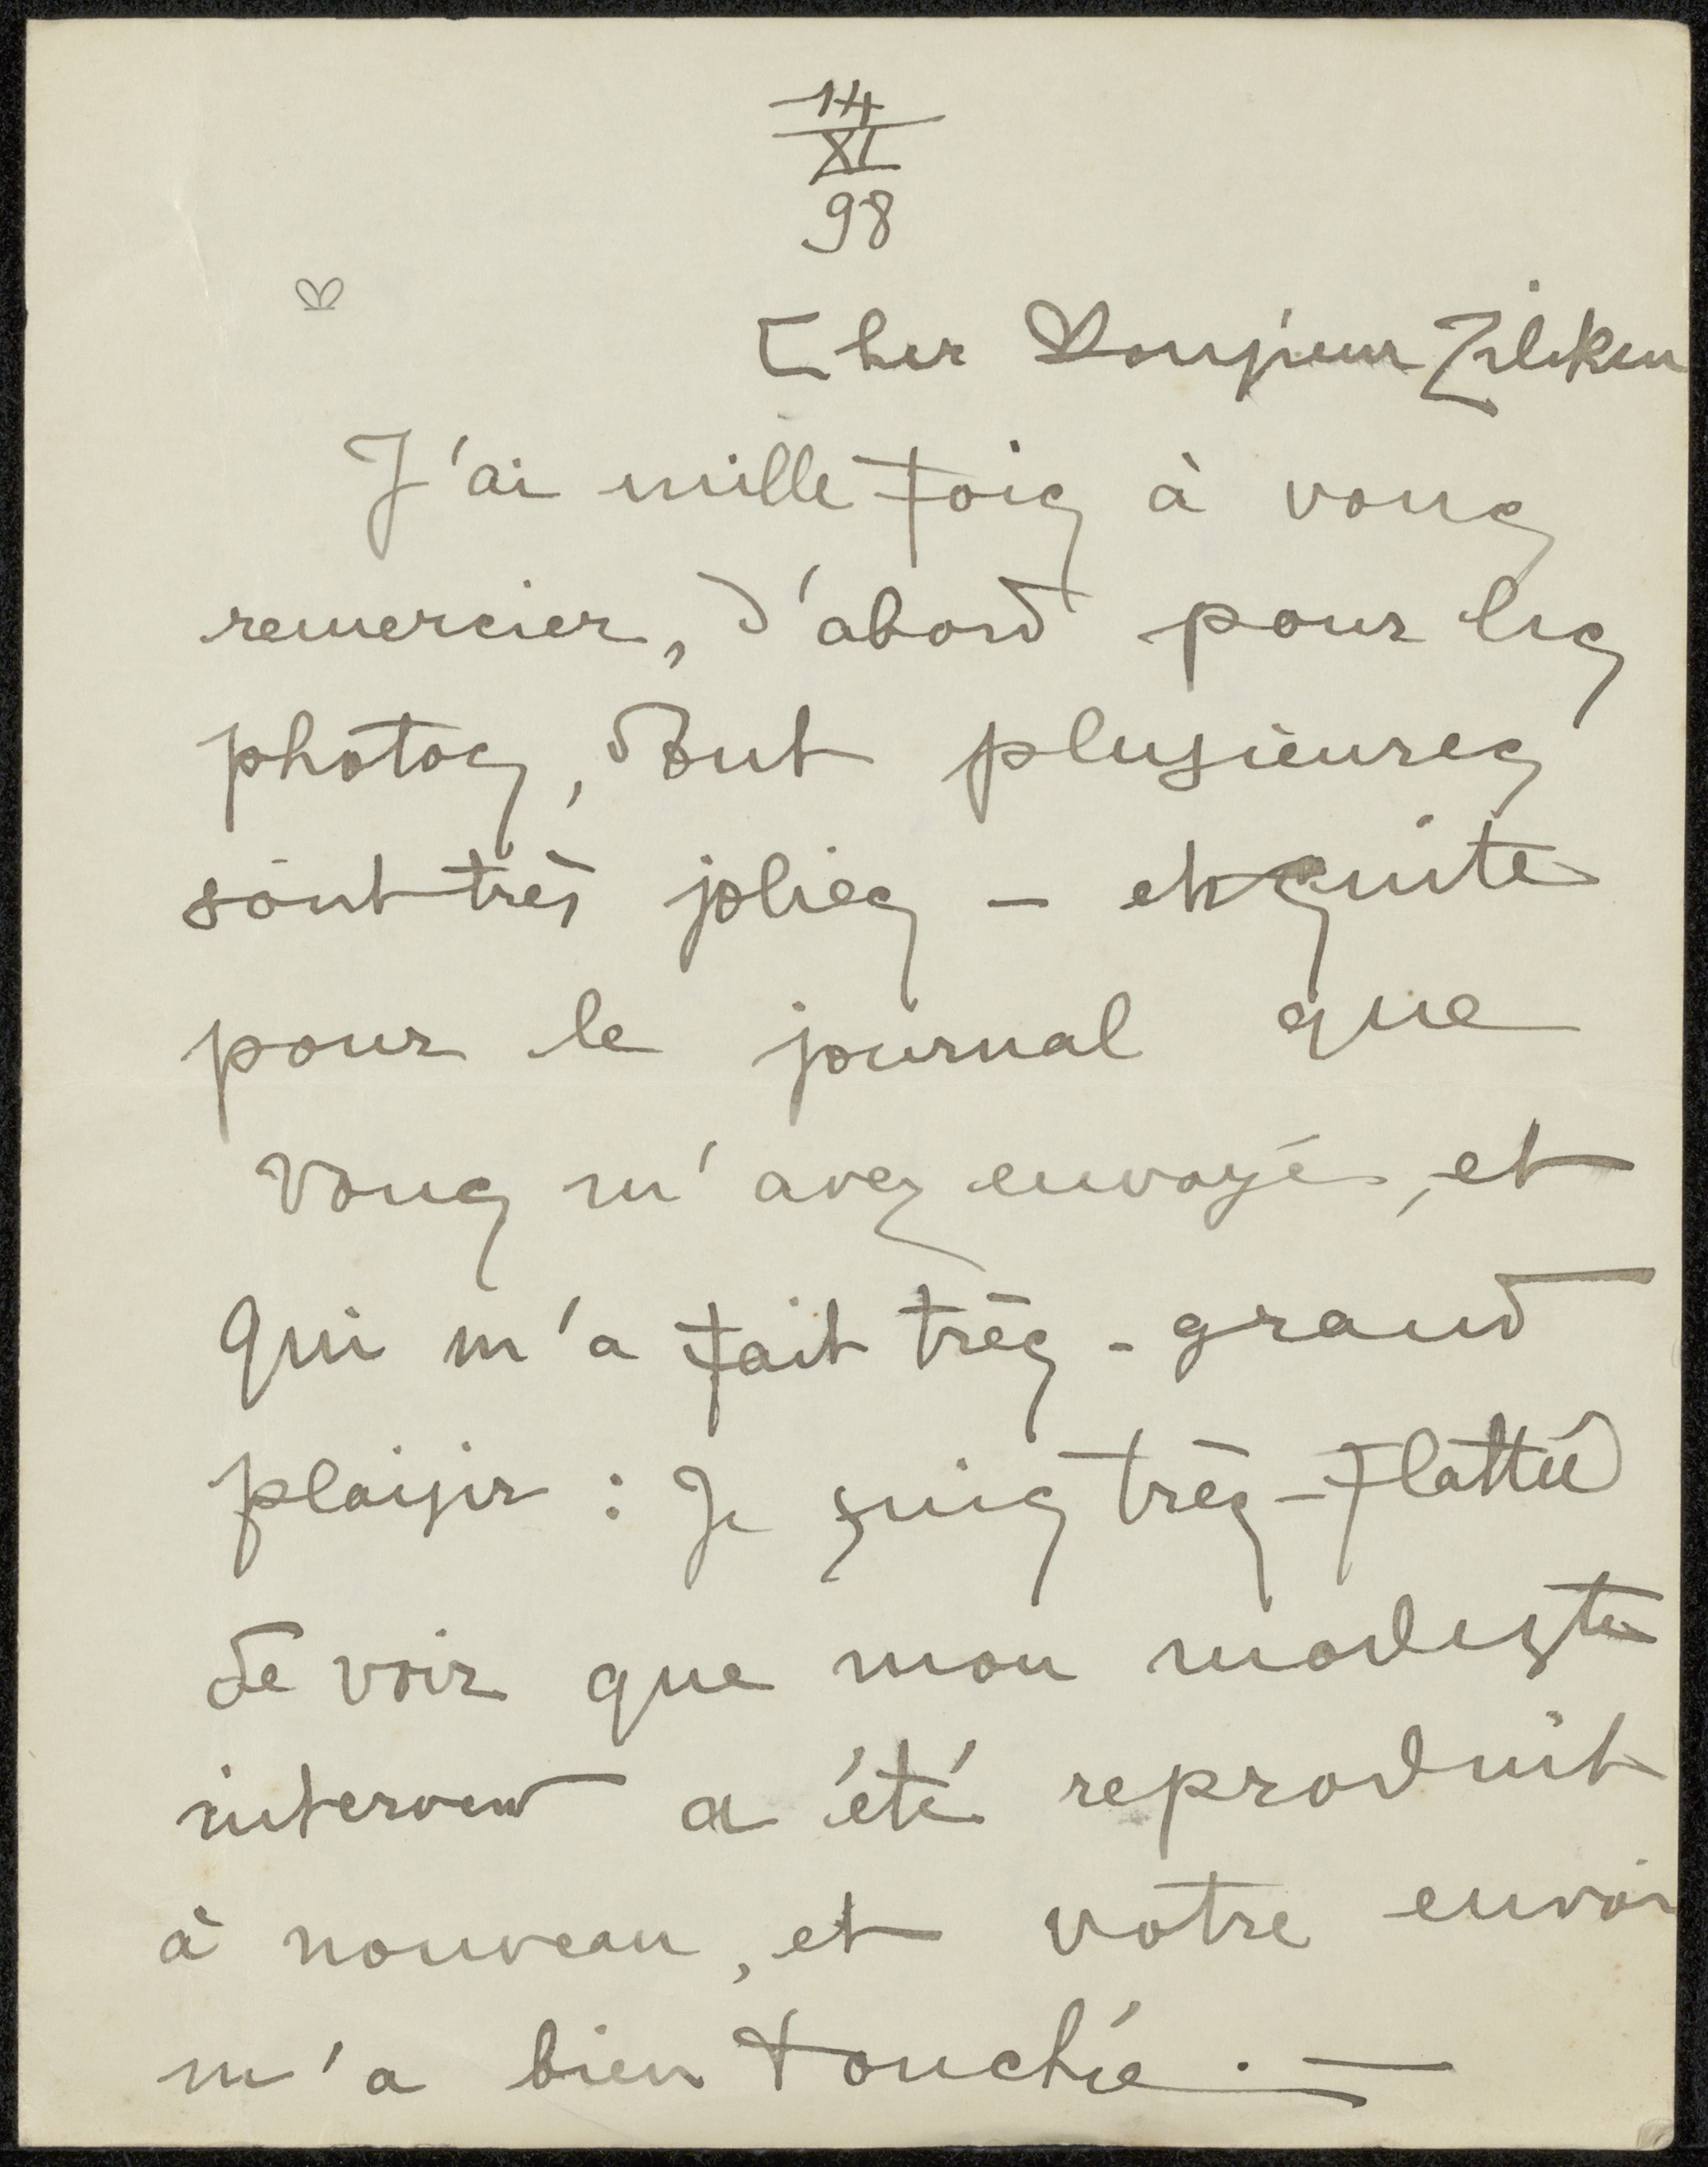 14
XI
98
Cher Monsieur Zilcken
J'ai mille fois à vous
remercier, d'abord pour les
photos, dont plusieures
sont très jolies — et ensuite
pour le journal que
vous m'avez envoyé, et
qui m'a fait très-grand
plaisir : Je suis très-flatté
de voir que mon modeste
interview a été reproduit
à nouveau, et votre envoi
m'a bien touchée. —